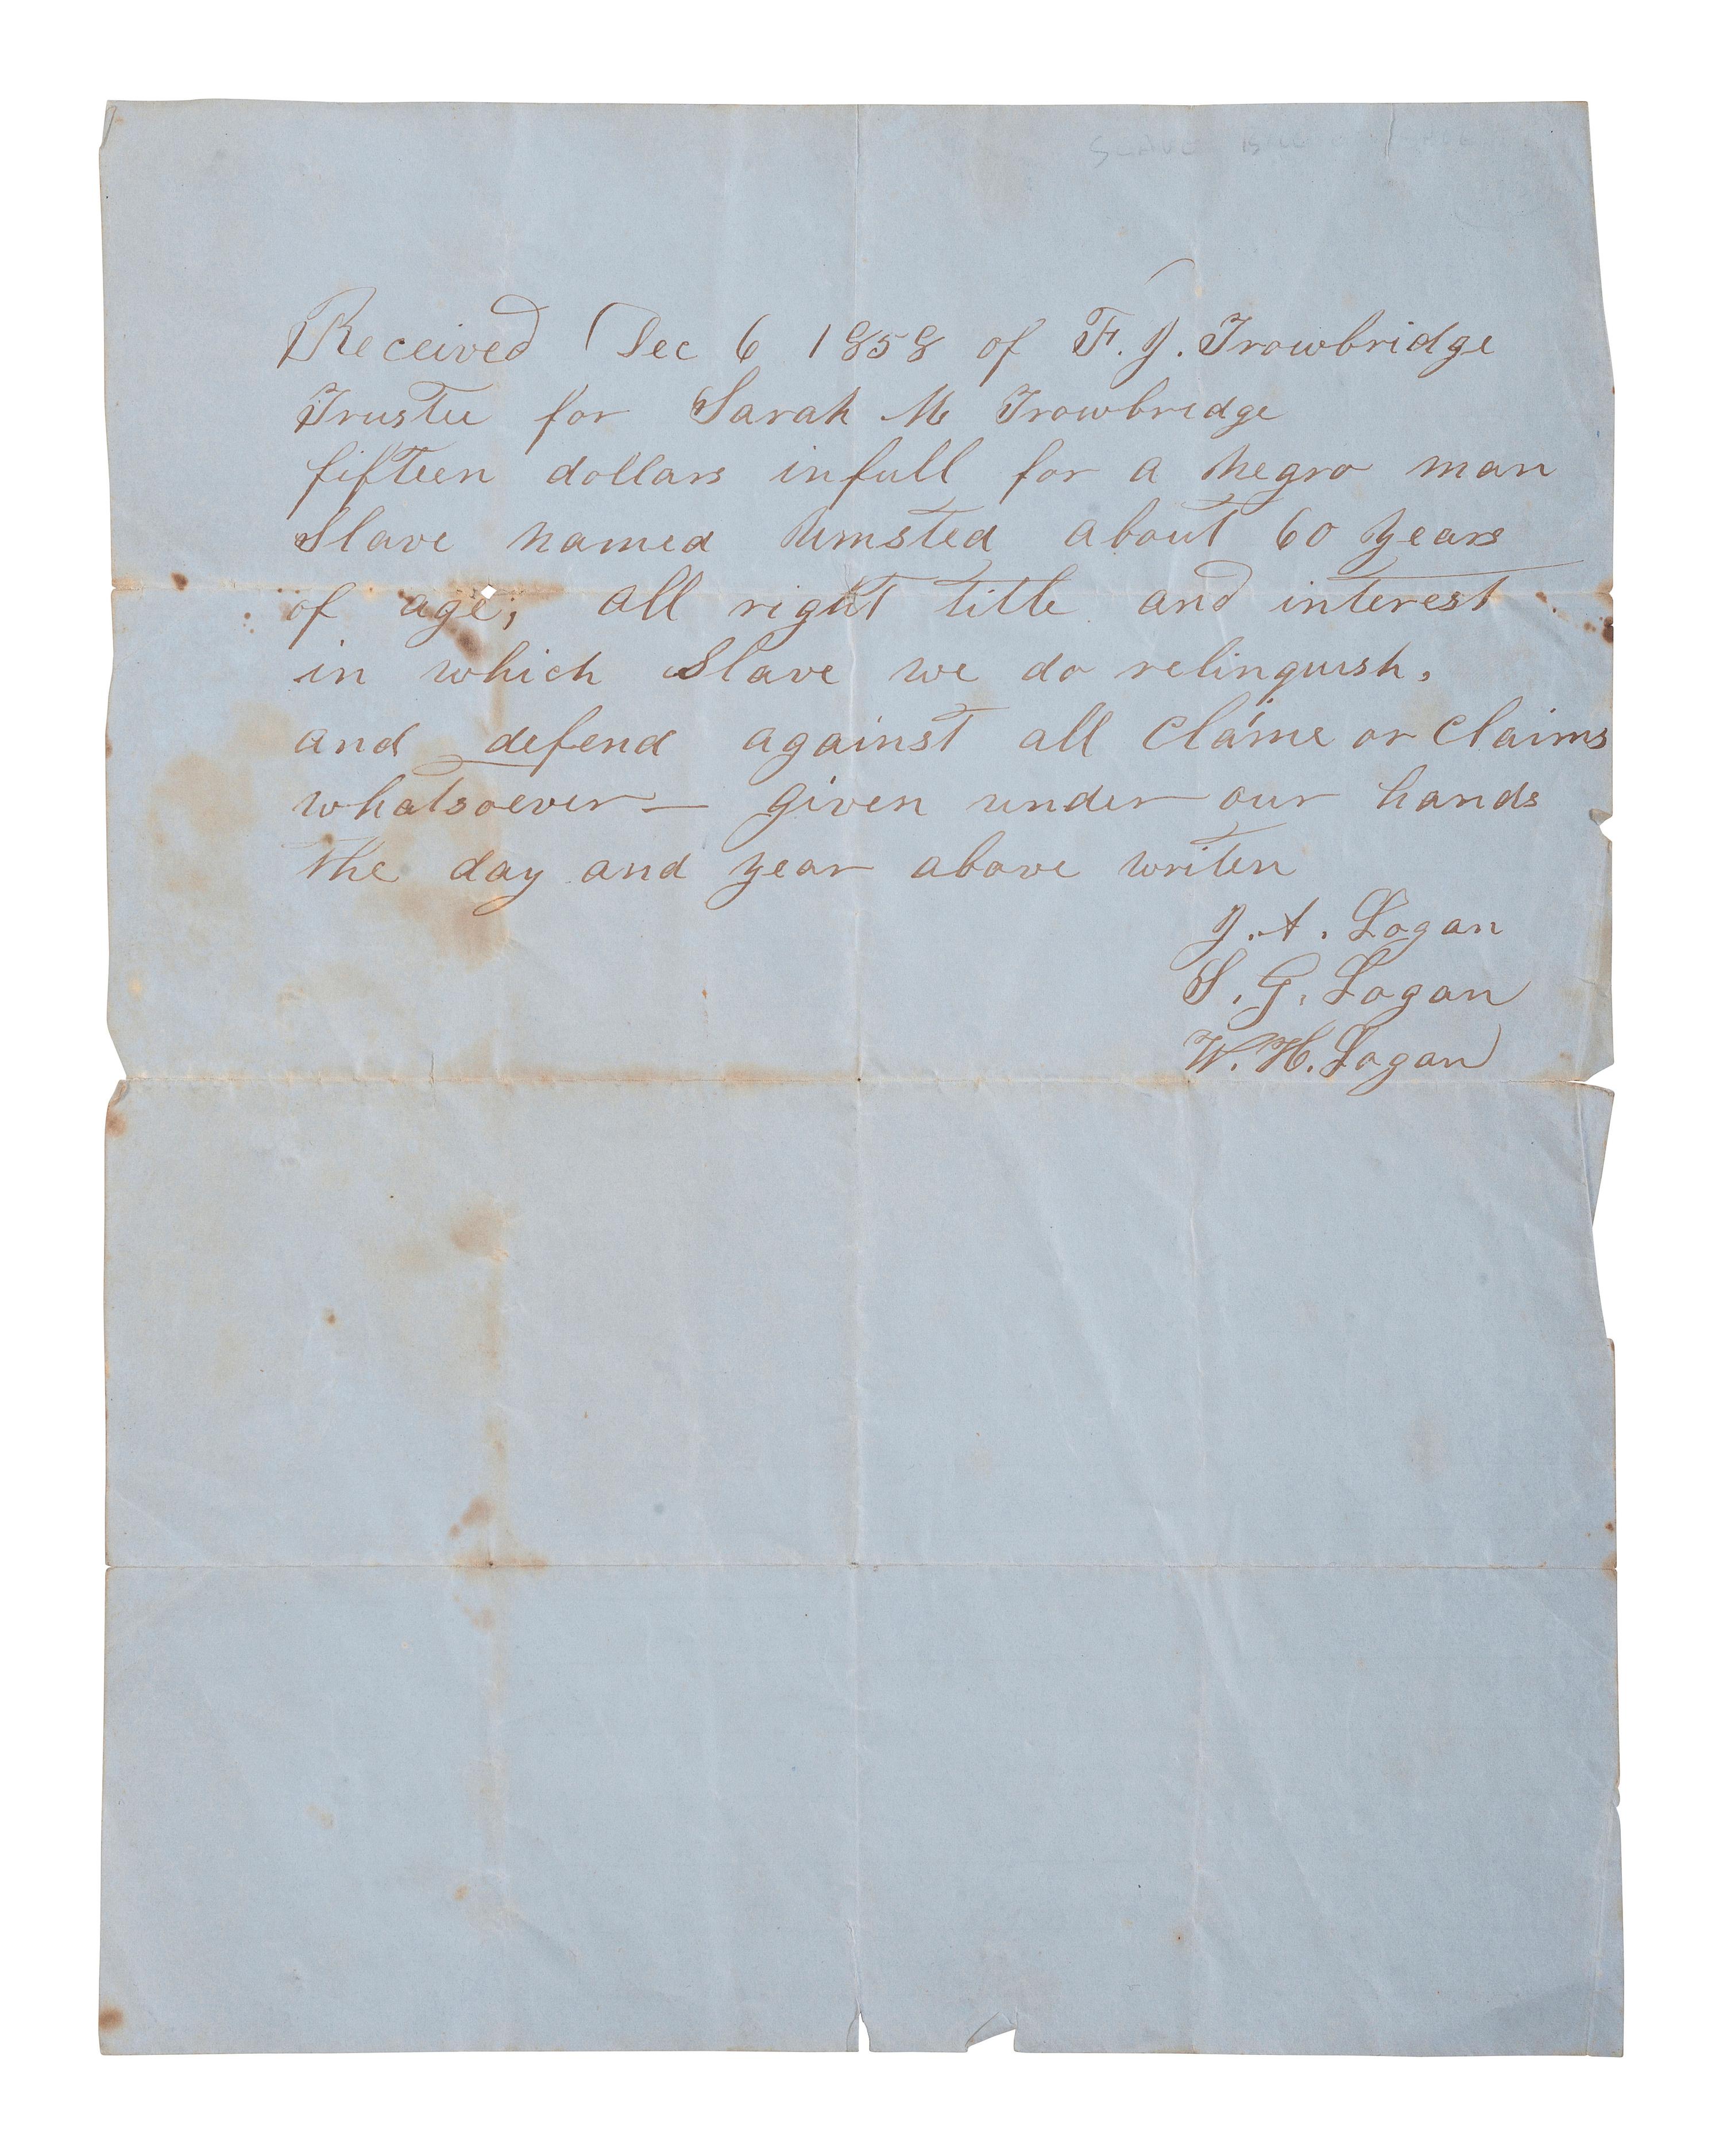 SLAVE
Received Dec 6 1858 of F. J. Trowbridge
Trustee for Sarah M Trowbridge
fifteen dollars infull for a negro man
Slave named Umsted about 60 years
of age; all right title and interest
in which Slave we do relinquish,
and defend against all claime or Claims
whatsoever — given under our hands
the day and year above writen
J. A. Logan
S. G. Logan
W. H. Logan